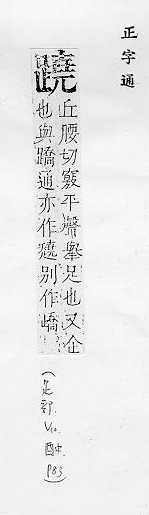 正字通
蹺
丘腰切竅平聲舉足也又企
也與蹻通亦作𨇊別作嶠
(足部. V10. 酉中. P83)